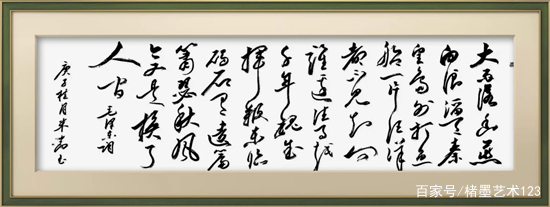 大雨落幽燕
白浪滔天秦
皇岛外打鱼
船一片汪洋
都不见知向
谁边往事越
千年魏武
挥鞭东临
碣石有遗篇
萧瑟秋风
今又是换了
人间
毛泽东词
庚子桂月书
百家号/楮墨艺术123